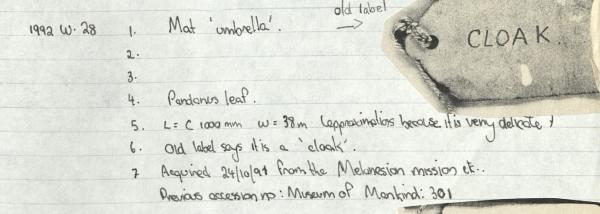 old label
CLOAK.
1992 W. 28 1. Mat 'umbrella'.
2.
3.
4. Pandanus leaf.
5. L = C 1000 mm W = 38m (approximations because it is very delicate)
6. Old label says it is a 'cloak'.
7 Acquired 24/10/91 from the Melanesian mission etc..
Previous accession no: Museum of Mankind: 301